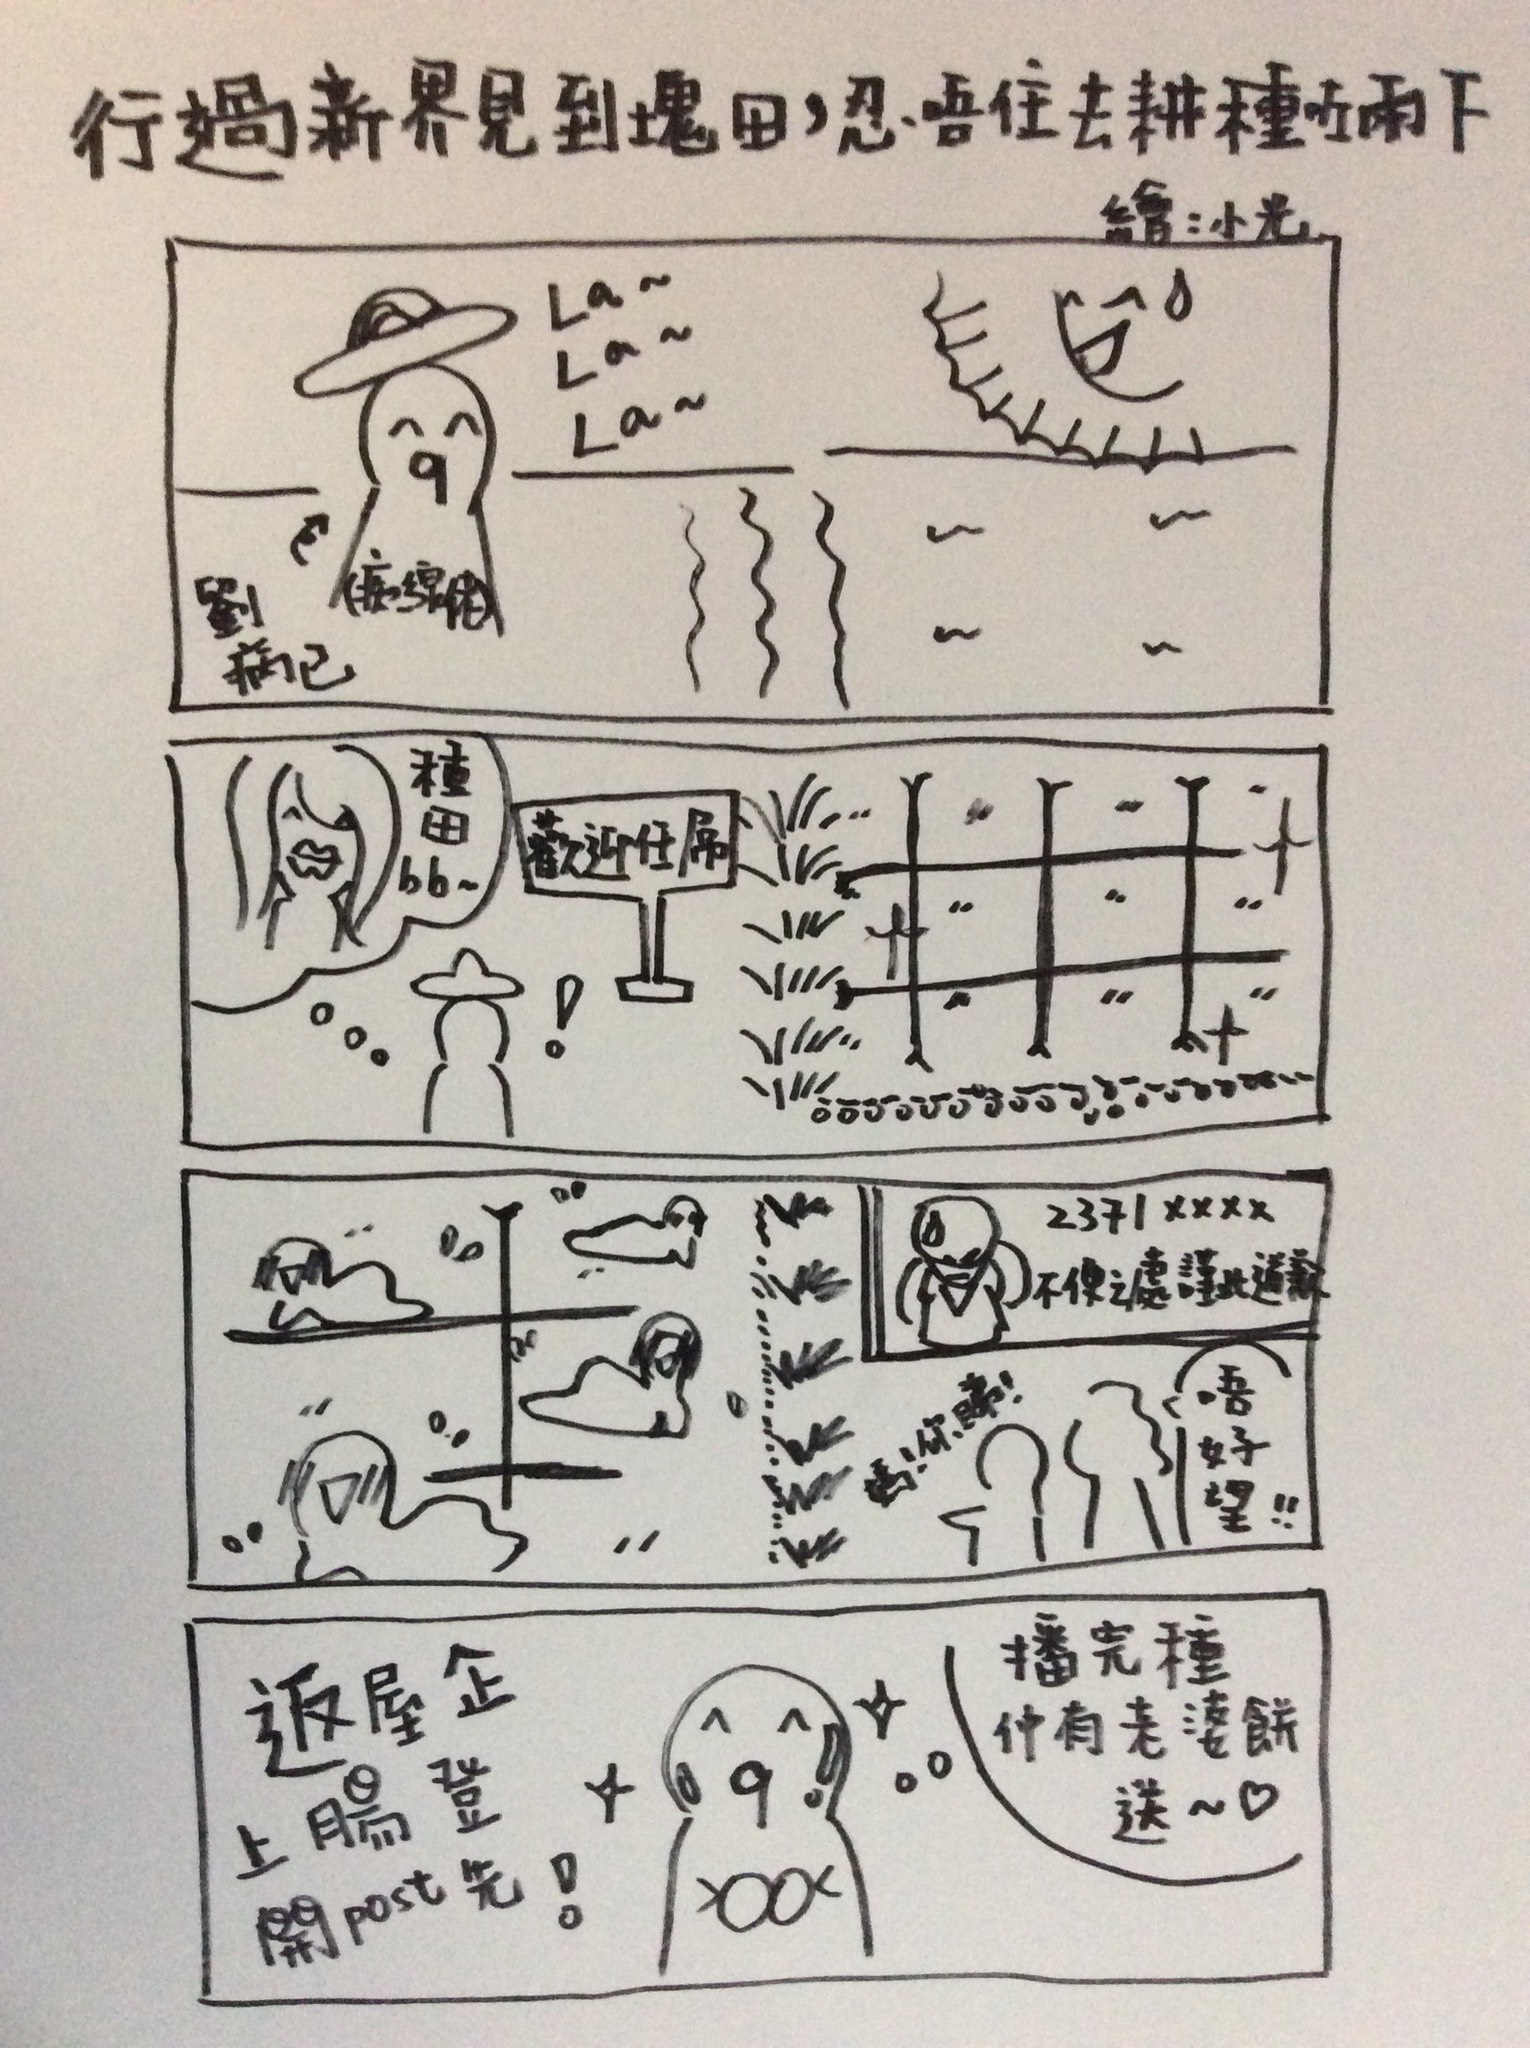 行過新界見到塊田，忍唔住去耕種咗兩下
繪：小光
La~
La~
La~
劉
病己
(痴線佬)
種
田
bb~
歡迎任屌
2371xxxx
不便之處謹此道歉
媽！你睇！
唔
好
望!!
返屋企
上腸登
開post先！
播完種
仲有老婆餅
送～♡